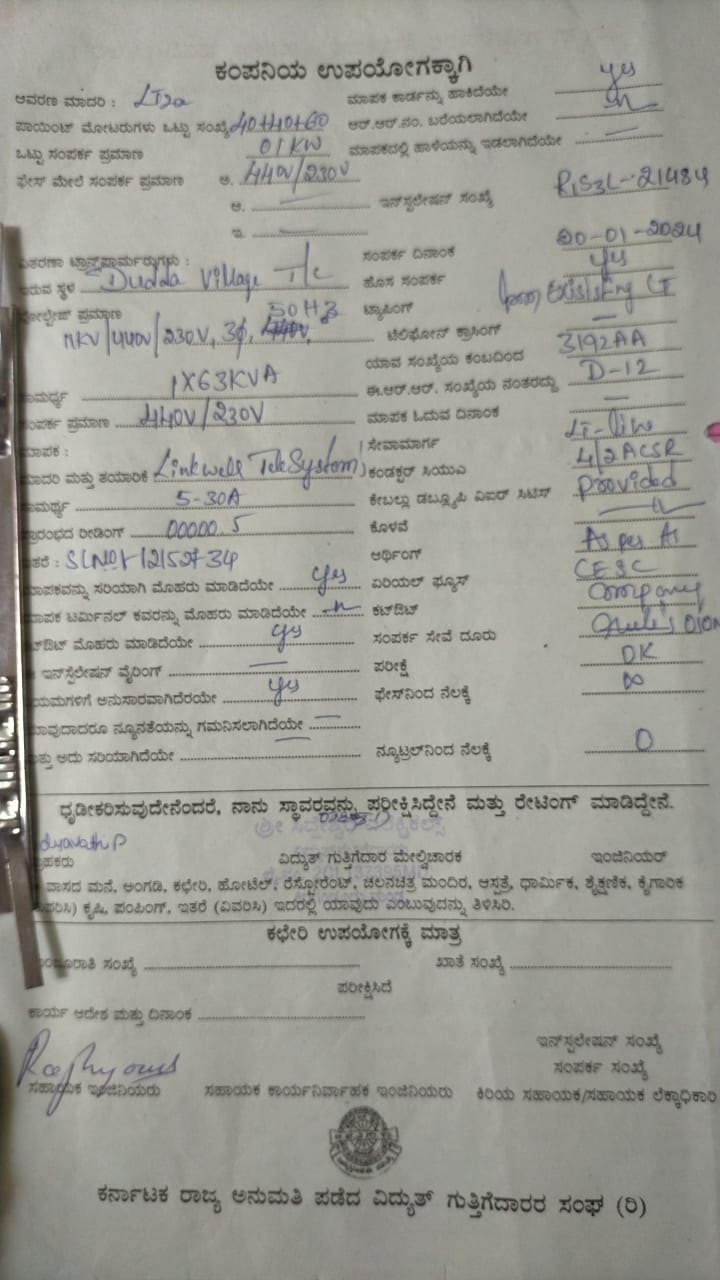 ಕಂಪನಿಯ ಉಪಯೋಗಕ್ಕಾಗಿ
ಆವರಣ ಮಾದರಿ : LT2a ಮಾಪಕ ಕಾರ್ಡನ್ನು ಹಾಕಿದೆಯೇ yes
ಪಾಯಿಂಟ್ ಮೋಟರುಗಳು ಒಟ್ಟು ಸಂಖ್ಯೆ 40+40+60 ಆರ್.ಆರ್.ನಂ. ಬರೆಯಲಾಗಿದೆಯೇ
ಒಟ್ಟು ಸಂಪರ್ಕ ಪ್ರಮಾಣ 01 KW ಮಾಪಕದಲ್ಲಿ ಹಾಳೆಯನ್ನು ಇಡಲಾಗಿದೆಯೇ —
ಫೇಸ್ ಮೇಲೆ ಸಂಪರ್ಕ ಪ್ರಮಾಣ ಅ. 440V/230V
ಆ. — ಇನ್‌ಸ್ಟಲೇಷನ್ ಸಂಖ್ಯೆ 21484
ಇ. — ಸಂಪರ್ಕ ದಿನಾಂಕ 20-01-2024
ವಿತರಣಾ ಟ್ರಾನ್ಸ್‌ಫಾರ್ಮರುಗಳು :
ಇರುವ ಸ್ಥಳ Dudda Village T/c ಹೊಸ ಸಂಪರ್ಕ yes
ವೋಲ್ಟೇಜ್ ಪ್ರಮಾಣ 50HZ ಟ್ಯಾಪಿಂಗ್ from Existing LT
11KV/440V/230V, 3ϕ, ಟೆಲಿಫೋನ್ ಕ್ರಾಸಿಂಗ್ —
ಯಾವ ಸಂಖ್ಯೆಯ ಕಂಬದಿಂದ 3192AA
ಸಾಮರ್ಥ್ಯ 1X63KVA ಈ.ಆರ್.ಆರ್. ಸಂಖ್ಯೆಯ ನಂತರದ್ದು D-12
ಸಂಪರ್ಕ ಪ್ರಮಾಣ 440V/230V ಮಾಪಕ ಓದುವ ದಿನಾಂಕ —
ಮಾಪಕ : ಸೇವಾಮಾರ್ಗ LT-line
ಮಾದರಿ ಮತ್ತು ತಯಾರಿಕೆ Linkwell TeleSystem ಕಂಡಕ್ಟರ್ ಸಿಯುಎ 4/2 ACSR
ಸಾಮರ್ಥ್ಯ 5-30A ಕೇಬಲ್ಲು ಡಬ್ಲ್ಯೂಪಿ ವಿಐರ್ ಸಿಟಿಸ್ Provided
ಪ್ರಾರಂಭದ ರೀಡಿಂಗ್ 00000.5 ಕೊಳವೆ
ಇತರೆ : ಅರ್ಥಿಂಗ್ As per
ಮಾಪಕವನ್ನು ಸರಿಯಾಗಿ ಮೊಹರು ಮಾಡಿದೆಯೇ yes ಏರಿಯಲ್ ಫ್ಯೂಸ್ CESC
ಮಾಪಕ ಟರ್ಮಿನಲ್ ಕವರನ್ನು ಮೊಹರು ಮಾಡಿದೆಯೇ ಕಟ್‌ಔಟ್ Company
ಕಟ್‌ಔಟ್ ಮೊಹರು ಮಾಡಿದೆಯೇ yes ಸಂಪರ್ಕ ಸೇವೆ ದೂರು
ಇನ್‌ಸ್ಟಲೇಷನ್ ವೈರಿಂಗ್ — ಪರೀಕ್ಷೆ OK
ನಿಯಮಗಳಿಗೆ ಅನುಸಾರವಾಗಿದೆಯೇ yes ಫೇಸ್‌ನಿಂದ ನೆಲಕ್ಕೆ ∞
ಯಾವುದಾದರೂ ನ್ಯೂನತೆಯನ್ನು ಗಮನಿಸಲಾಗಿದೆಯೇ —
ಮತ್ತು ಅದು ಸರಿಯಾಗಿದೆಯೇ — ನ್ಯೂಟ್ರಲ್‌ನಿಂದ ನೆಲಕ್ಕೆ 0
ಧೃಡೀಕರಿಸುವುದೇನೆಂದರೆ, ನಾನು ಸ್ಥಾವರವನ್ನು ಪರೀಕ್ಷಿಸಿದ್ದೇನೆ ಮತ್ತು ರೇಟಿಂಗ್ ಮಾಡಿದ್ದೇನೆ.
ಶ್ರೀ ಸಿದ್ದೇಶ್ವರ
ಗ್ರಾಹಕರು ವಿದ್ಯುತ್ ಗುತ್ತಿಗೆದಾರ ಮೇಲ್ವಿಚಾರಕ ಇಂಜಿನಿಯರ್
ವಾಸದ ಮನೆ, ಅಂಗಡಿ, ಕಛೇರಿ, ಹೋಟೆಲ್, ರೆಸ್ಟೋರೆಂಟ್, ಚಲನಚಿತ್ರ ಮಂದಿರ, ಆಸ್ಪತ್ರೆ, ಧಾರ್ಮಿಕ, ಶೈಕ್ಷಣಿಕ, ಕೈಗಾರಿಕ
(ವಿವರಿಸಿ) ಕೃಷಿ, ಪಂಪಿಂಗ್, ಇತರೆ (ವಿವರಿಸಿ) ಇದರಲ್ಲಿ ಯಾವುದು ಎಂಬುವುದನ್ನು ತಿಳಿಸಿರಿ.
ಕಛೇರಿ ಉಪಯೋಗಕ್ಕೆ ಮಾತ್ರ
ಮಂಜೂರಾತಿ ಸಂಖ್ಯೆ ಖಾತೆ ಸಂಖ್ಯೆ
ಪರೀಕ್ಷಿಸಿದೆ
ಕಾರ್ಯ ಆದೇಶ ಮತ್ತು ದಿನಾಂಕ
ಇನ್‌ಸ್ಟಲೇಷನ್ ಸಂಖ್ಯೆ
ಸಂಪರ್ಕ ಸಂಖ್ಯೆ
ಸಹಾಯಕ ಇಂಜಿನಿಯರು ಸಹಾಯಕ ಕಾರ್ಯನಿರ್ವಾಹಕ ಇಂಜಿನಿಯರು ಕಿರಿಯ ಸಹಾಯಕ/ಸಹಾಯಕ ಲೆಕ್ಕಾಧಿಕಾರಿ
ಕರ್ನಾಟಕ ರಾಜ್ಯ ಅನುಮತಿ ಪಡೆದ ವಿದ್ಯುತ್ ಗುತ್ತಿಗೆದಾರರ ಸಂಘ (ರಿ)